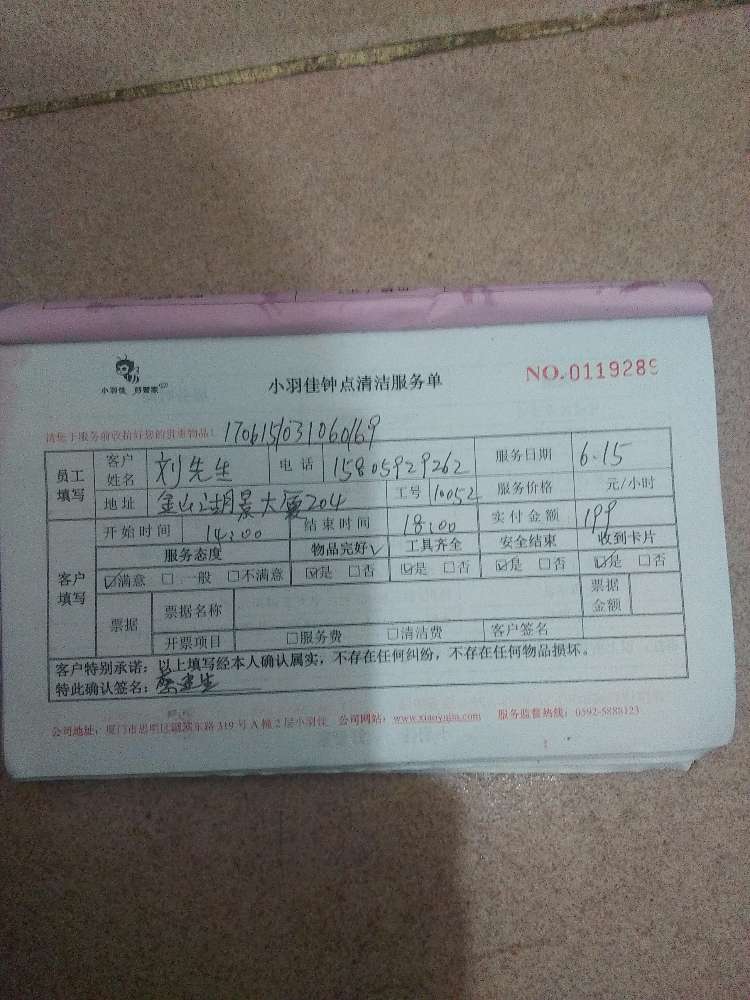 小羽佳 好管家
小羽佳钟点清洁服务单
NO.0119289
请您于服务前收拾好您的贵重物品!
170615/031060169
员工填写 客户姓名 刘先生 电话 15805929262 服务日期 6.15
地址 金山湖景大厦204 工号 10052 服务价格 元/小时
客户填写 开始时间 14:00 结束时间 18:00 实付金额 199
服务态度 物品完好√ 工具齐全 安全结束 收到卡片
☑满意 □一般 □不满意 ☑是 □否 ☑是 □否 ☑是 □否 ☑是 □否
票据 票据名称 票据金额
开票项目 □服务费 □清洁费 客户签名
客户特别承诺:以上填写经本人确认属实,不存在任何纠纷,不存在任何物品损坏。
特此确认签名:
公司地址:厦门市思明区 东路319号A幢2层小羽佳 公司网站:www.xiaoyujia.com 服务监督热线:0592-5888123